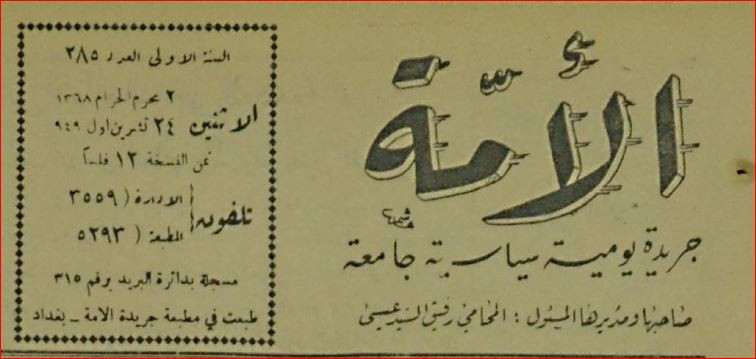 الأمة
جريدة يومية سياسية جامعة
صاحبها ومديرها المسئول : المحامي رفيق السيد عيسى
السنة الاولى العدد ٢٨٥
٢ محرم الحرام ١٣٦٨
الاثنين ٢٤ تشرين اول ٩٤٩
ثمن النسخة ١٢ فلساً
تلفون { الادارة ( ٣٥٥٩
المطبعة ( ٥٢٩٣
مسجلة بدائرة البريد برقم ٣١٥
طبعت في مطبعة جريدة الامة - بغداد